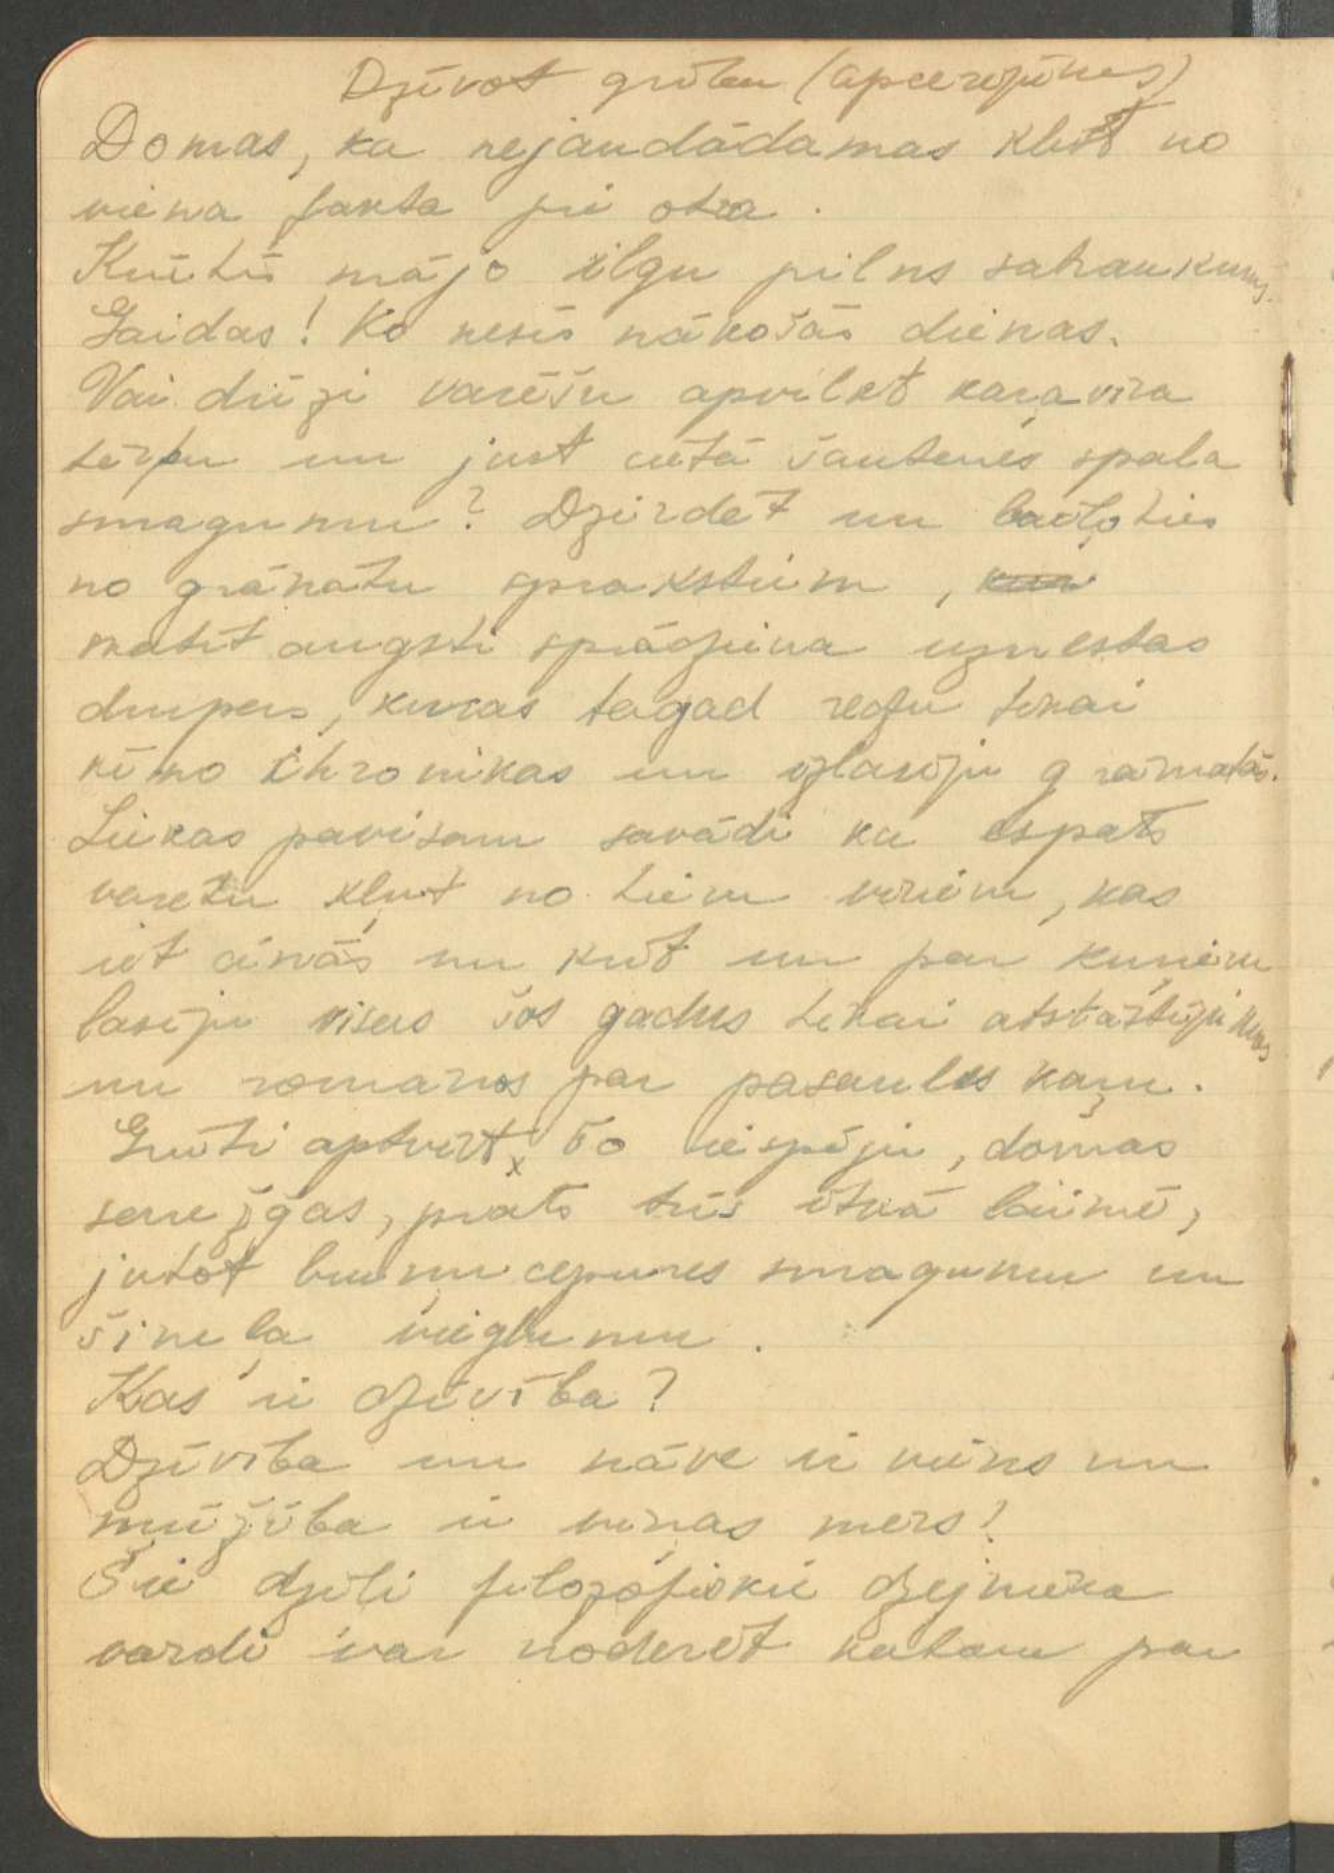 Dzīvot gribu (apcerējums)
Domas, ka nejaudādamas kļūt no
viena fakta pie otra.
Krūtīs mājo ilgu pilns satraukums.
Gaidas! Ko nesīs nākošās dienas.
Vai drīzi varēšu apvilkt kaŗavīra
tērpu un just cietā šautenes spala
smagumu? Dzirdēt un baiļoties
no granātu sprakstiem,
matīt augsti sprādziena uznestas
drupas, kuras tagad redzu tikai
kino chronikas un izlasīju grāmatās.
Liekas pavisam savādi ka es pats
varētu kļut no tiem vīriem, kas
iet cīņās un krīt un par kuŗiem
lasīju visus šos gadus tikai atstāstījumus
un romanos par pasaules kaŗu.
Grūti aptvert šo iespēju, domas
sarežģās, prāts trīs itkā laimē,
jūtot bruņu cepures smagumu un
šineļa vieglumu.
Kas ir dzīvība?
Dzīvība un nāve ir viens un
mūžība ir viņas mers!
Šie dziļi filozofiskie dzejnieka
vardi var noderēt katram par